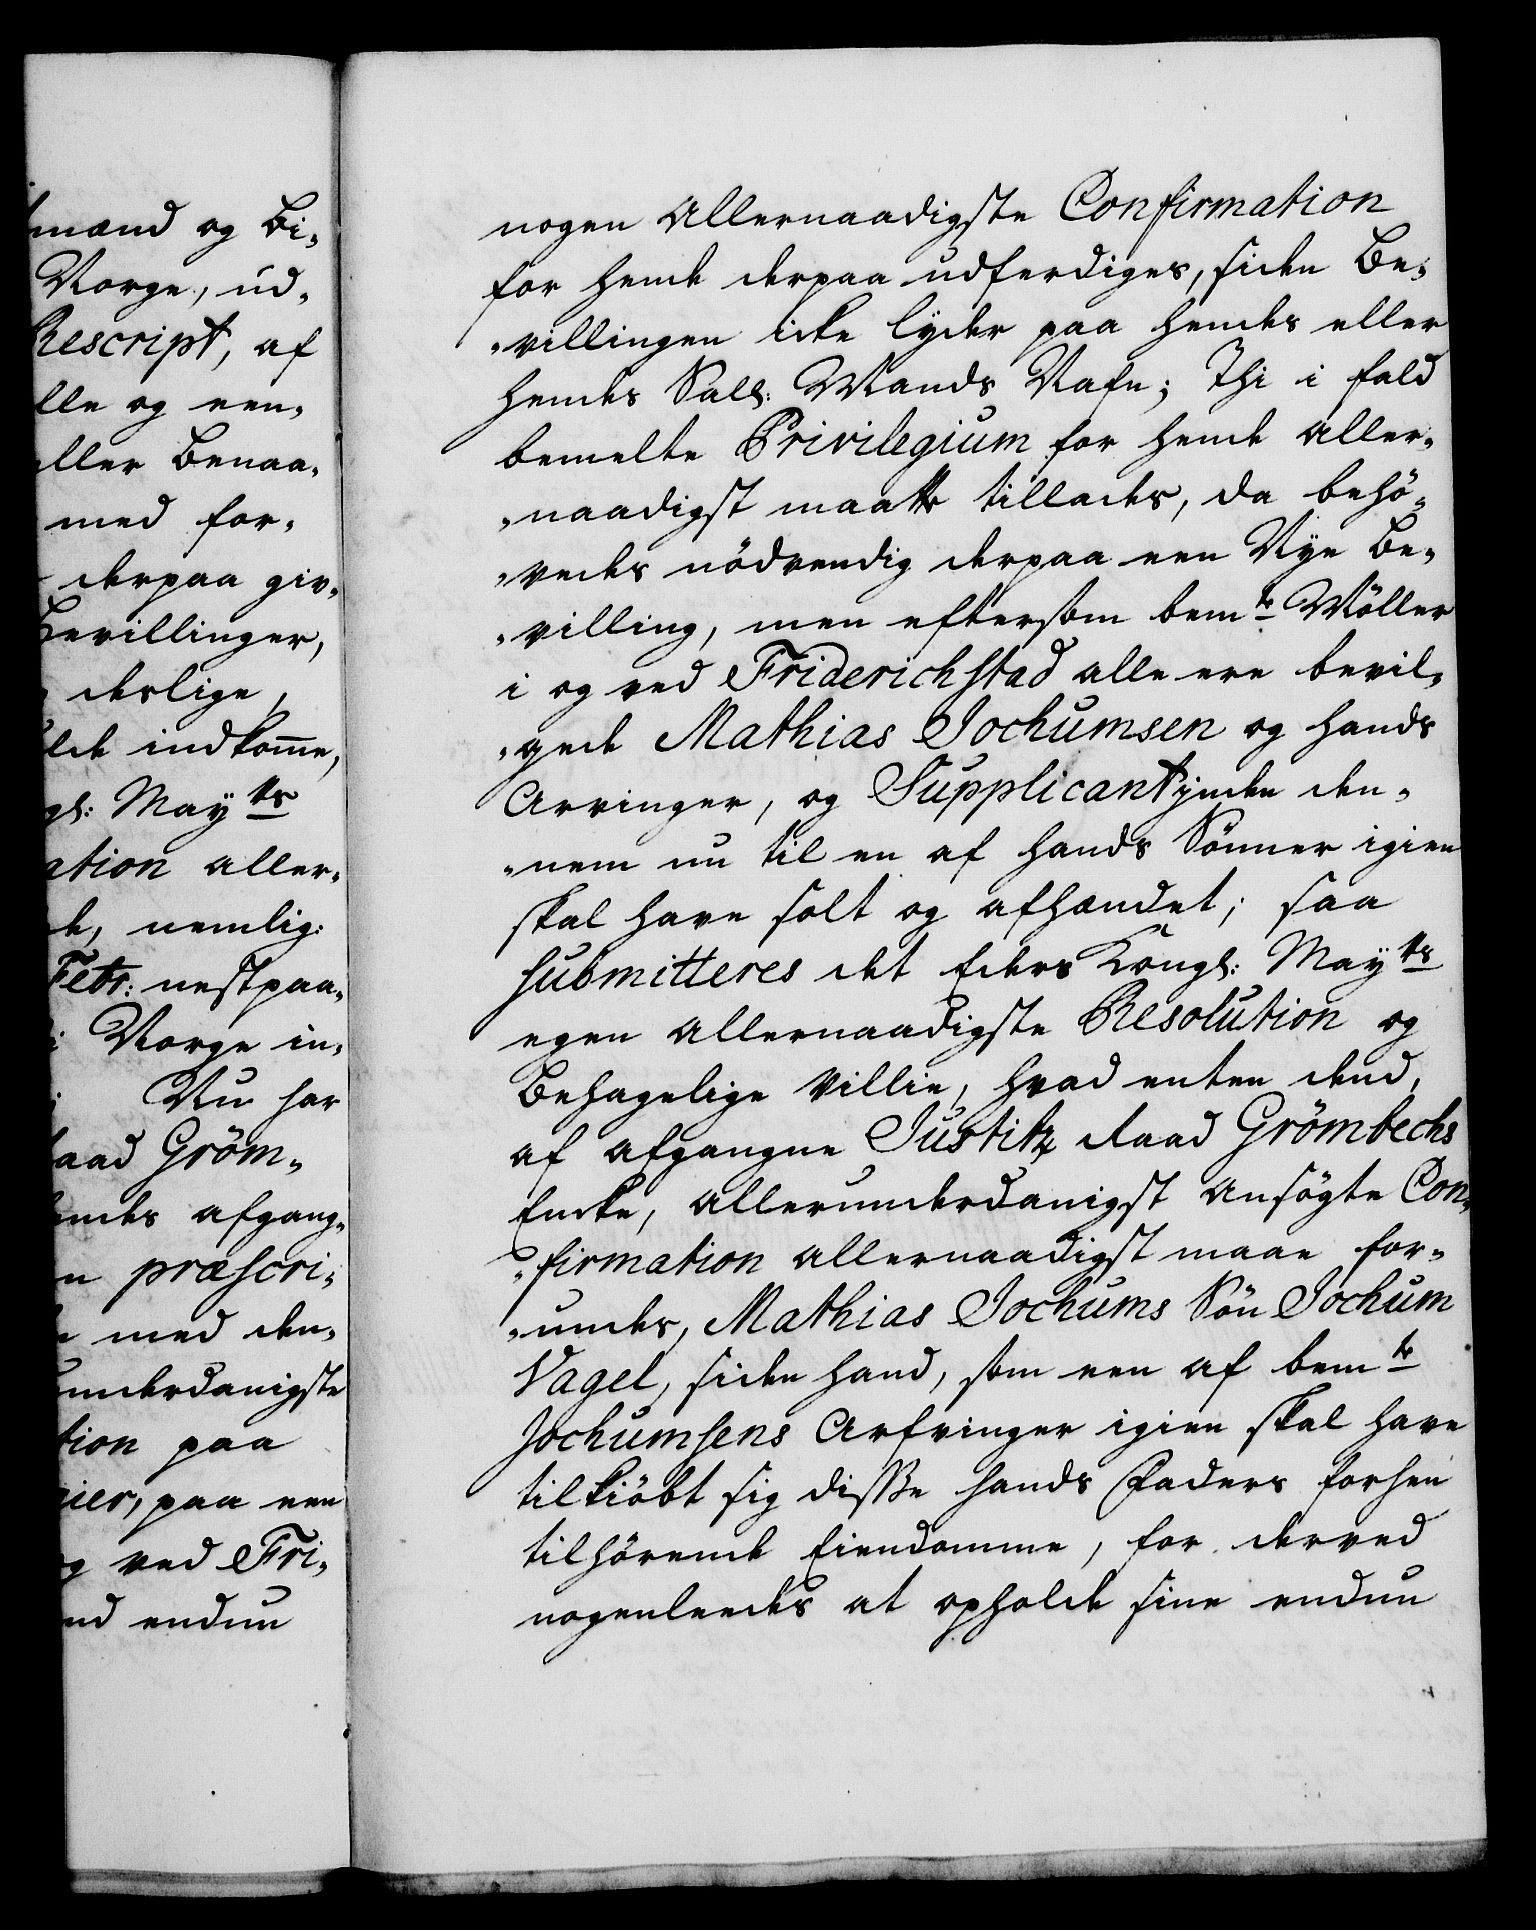 mænd og Bi-
Norge, ud-
Rescript, af
lle og een-
ller Benaa-
med for-
derpaa giv-
Bevillinger,
deslige,
lde indkomme,
gl: Mayts
ation aller-
de, nemlig:
Febr: nestpaa-
Norge in-
Nu har
aad Gröm-
endes afgang-
n præscri-
med den-
underdanigste
tion paa
ier, paa een
g ved Fri-
nd endnu
nogen Allernaadigste Confirmation
for hende derpaa udferdiges, siden Be-
-villingen icke lyder paa hendes eller
hendes Sall: Mands Nafn; Thi i fald
bemelte Privilegium for hende aller-
-naadigst maatte tillades, da behö-
-vedes nödvendig derpaa een Nye Be-
-villing, men eftersom bemte Möller
i og ved Friderichstad alle ere bevil-
-gede Mathias Jochumsen og hands
Arvinger, og Supplicantinden den-
-nem nu til en af hands Sönner igien
skal have solt og afhændet; saa
submitteres det Eders Kongl: Mayts
egen allernaadigste Resolution og
Behagelige Villie, hvad enten dend,
af afgangne Justitz Raad Grömbechs
Encke, allerunderdanigst ansögte Con-
-firmation allernaadigst maae for-
-undes, Mathias Jochums Sön Jochum
Vagel, siden hand, som een af bemte
Jochumsens Arfvinger igien skal have
tilkiöbt sig disse hands Faders forhen
tilhörende Eiendomme, for derved
nogenleedes at opholde sine endnu